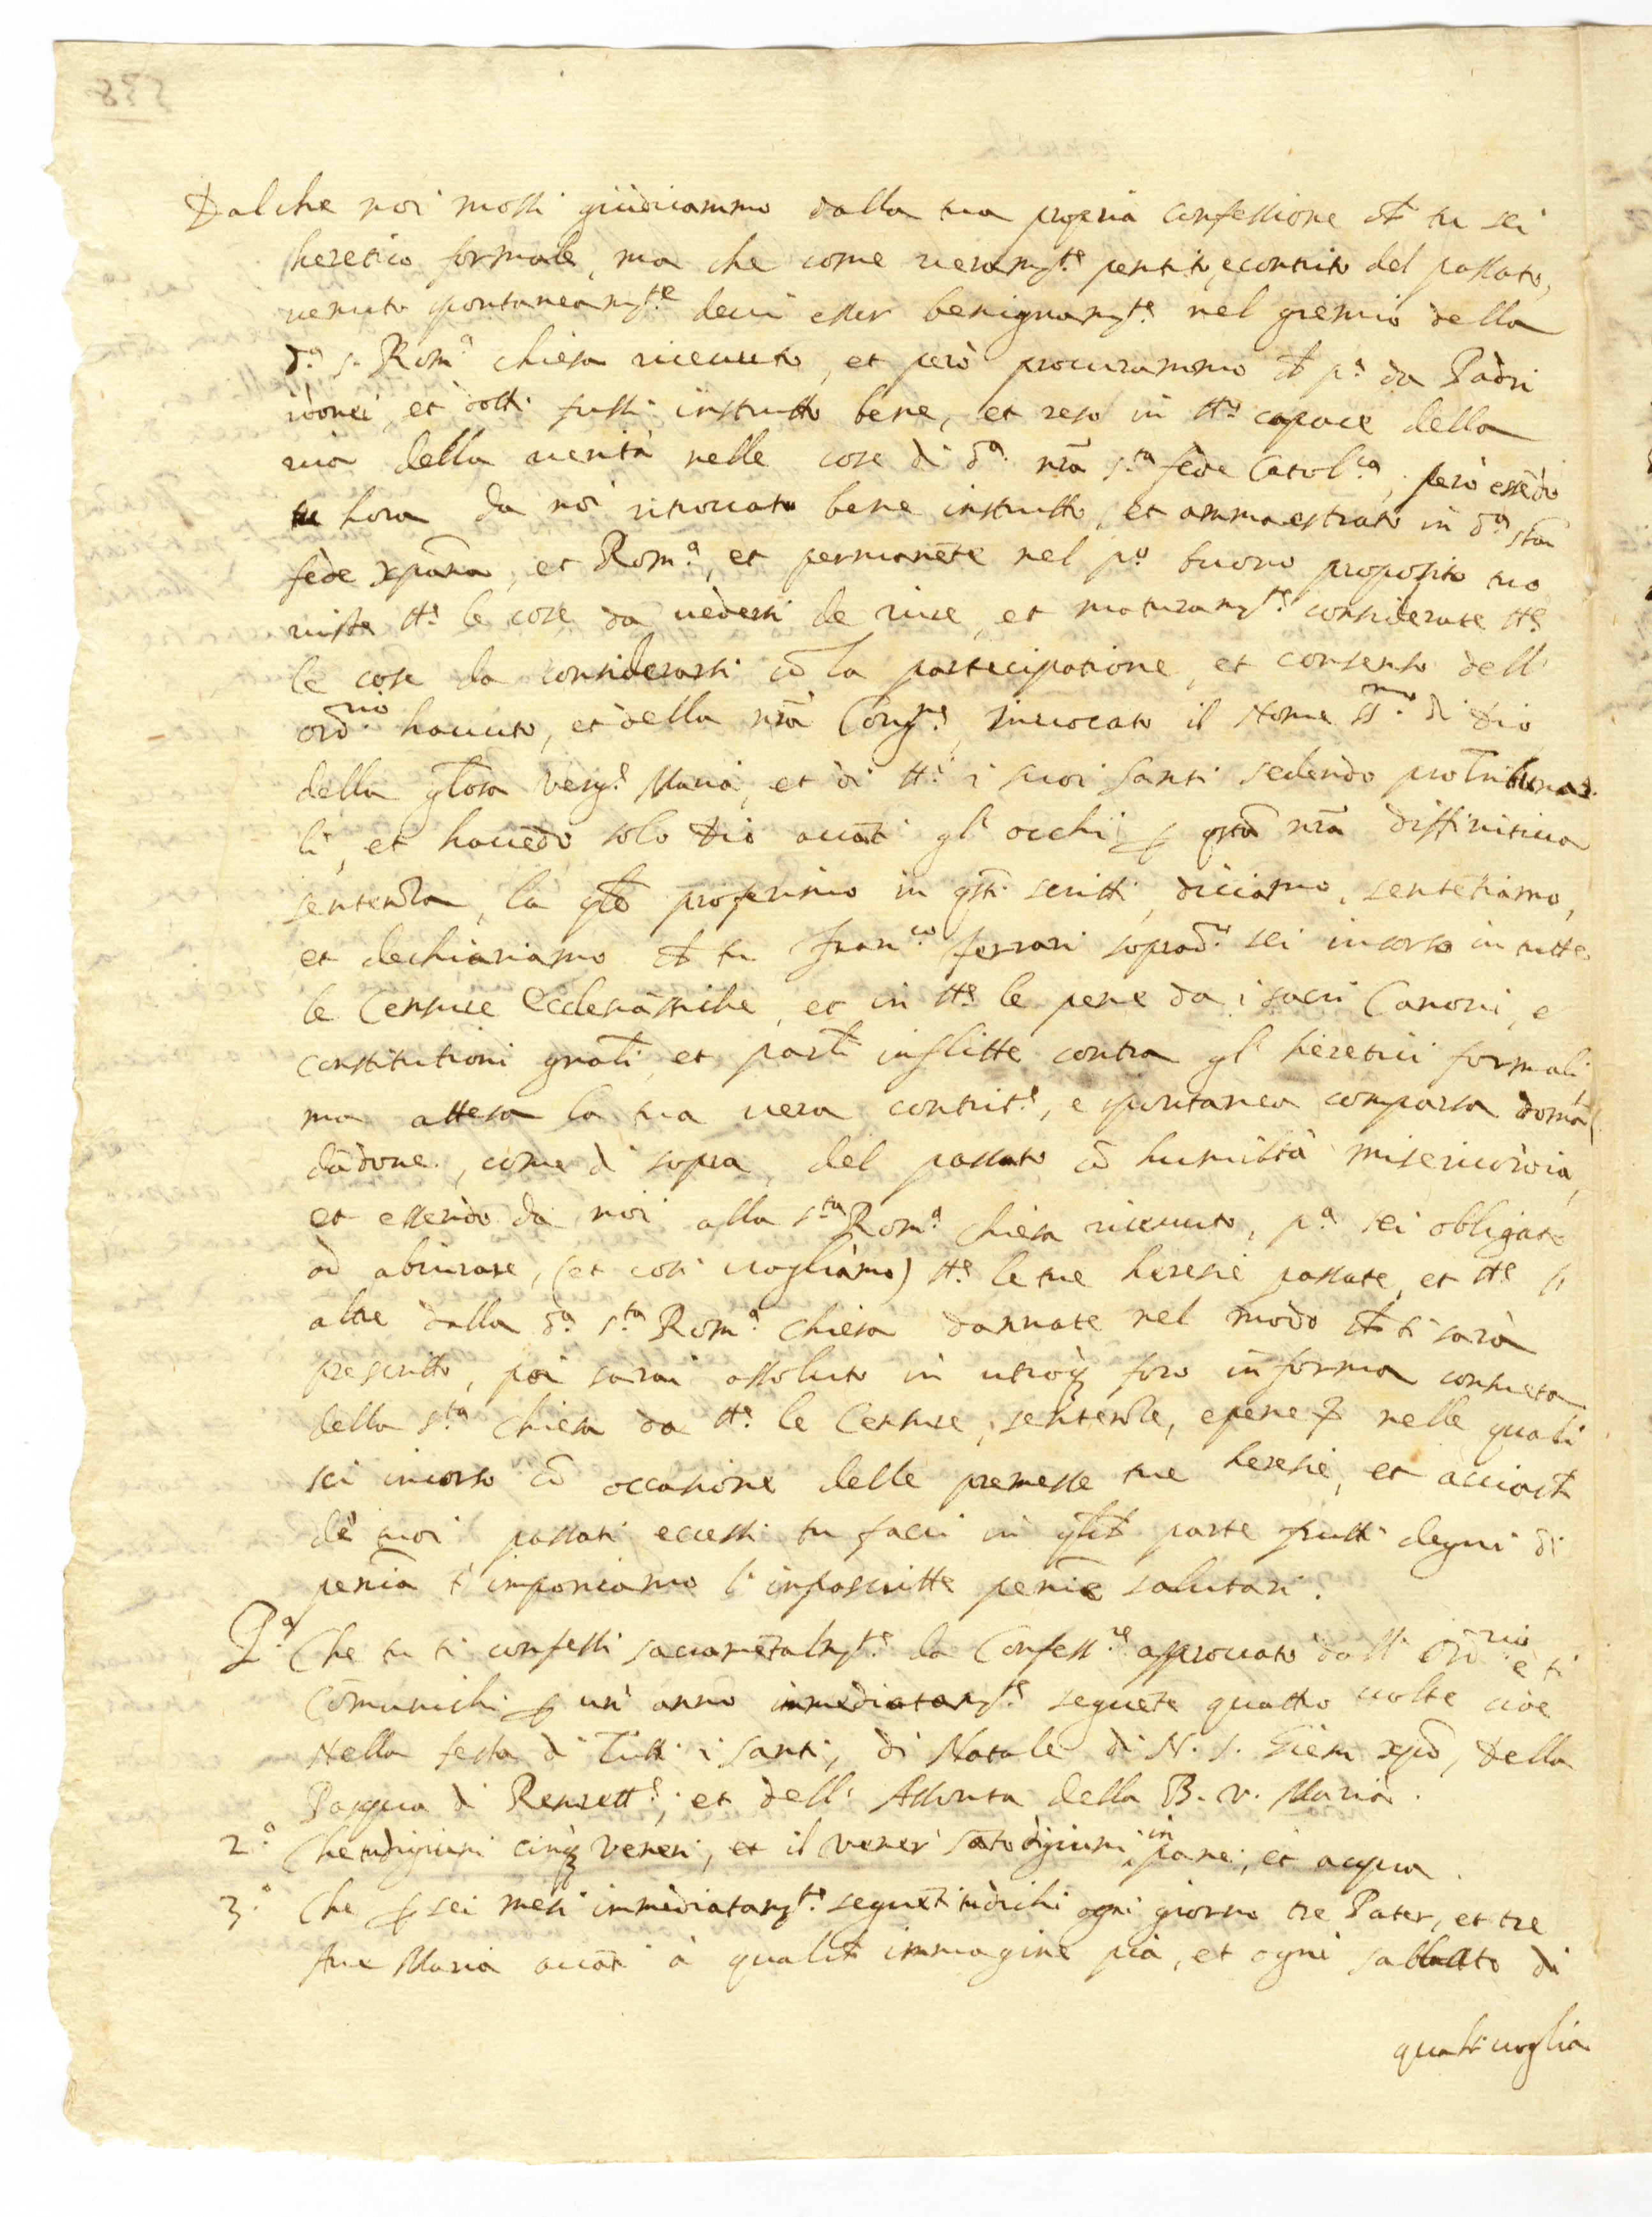 Dal che noi mossi giudicammo dalla tua propria confessione ch̄ tu sei
heretico formale, ma che come veram.te pentito, e contrito del passato,
venuto spontaneam.te devi esser benignam.te nel gremio della
d.a s. Rom.a chiesa ricevuto, et però procurammo ch̄ p.a da Padri
idonei, et dotti fussi instrutto bene, et reso in tt.o capace della
via della verità nelle cose di d.a nr̄a s.ta fede Catol.ca, però essēdo
tu hora da noi ritrovato bene instrutto, et ammaestrato in d.a sta
fede xpāna, et Rom.a, et permanēte nel p.o buono proposito tuo
viste tt.e le cose da vedersi de iure, et maturam.te considerate tt.e
le cose da considerarsi cō la partecipatione, et consenso dell'
ord.rio havuto, et della nr̄a Cong.ne, Invocato il Nome SS.mo di Dio
della glōsa Verg.e Maria, et di tt.i i suoi Santi sedendo pro Tribuna=
li, et havēdo solo Dio avāti gl'occhi, p qstā nr̄a diffinitiva
sentenza, la qle proferimo in qsti scritti, diciamo, sentētiamo,
et dechiariamo ch̄ tu Fran.co ferrari soprad.o sei incorso in tutte
le Censure Ecclesiastiche, et in tt.e le pene da i sacri Canoni, e
constitutioni gnāli, et partī inflitte contra gl'heretici formali
ma attesa la tua vera contrit.e, e spontanea comparsa domā
dādone, come di sopra, del passato cō humiltà misericordia,
et essendo da noi alla s.ta Rom.a chiesa ricevuto, p.a sei obligato
ad abiurare, (et così vogliamo) tt.e le tue heresie passate, et tt.e l'
altre dalla d.a s.ta Rom.a chiesa dannate nel modo ch̄ ti sarà
prescritto, poi sarai assoluto in utroq; foro in forma consueta
della s.ta chiesa da tt.e le Censure, sentenze, e pene nelle quali
sei incorso cō occasione delle premesse tue heresie, et acciochè
de tuoi passati eccessi tu facci in qlch̄ parte frutti degni di
penīa t'imponiamo l'infrascritte penīe salutari.
P.a Che tu ti confessi sacramētalm.te da Confess.re approvato dall' Ord.rio e ti
Cōmunichi p un'anno immediatam.te seguēte quattro volte cioè
Nella festa di Tutti i Santi, di Natale di N. S. Giesu xpō, della
Pasqua di Resurett.e, et dell' Assonta della B. V. Maria.
2.o Che tu digiuni cinq; Veneri, et il Vener' sāto digiuni in pane, et acqua.
3.o Che p sei mesi immediatam.te seguēti tu dichi ogni giorno tre Pater, et tre
Ave Maria avāti à qualch̄ immagine pia, et ogni sabbato di
qualsivoglia